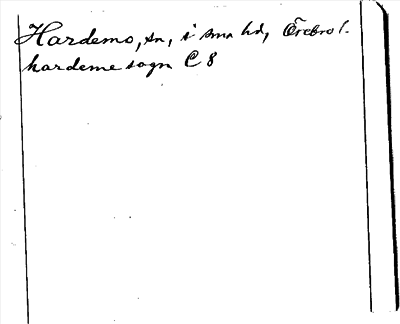 Hardemo, sn, i sma hd, Örebro l.
hardeme sogn C 8